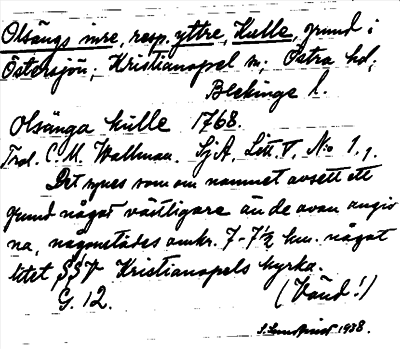 Olsängs inre, resp. yttre, Kulle, grund i
Östersjön; Kristianopel sn; Östra hd;
Blekinge l.
Olsänga kulle 1768.
Trol. C. M. Wallman. SjA, Litt. V, N:o 1.1.
Det synes som om namnet avsett ett
grund något västligare än de ovan angiv
na, någonstädes omkr. 7-7½ km. något
litet SSV Kristianopels kyrka.
G. 12. (Vänd!)
S. Lundqvist 1938.